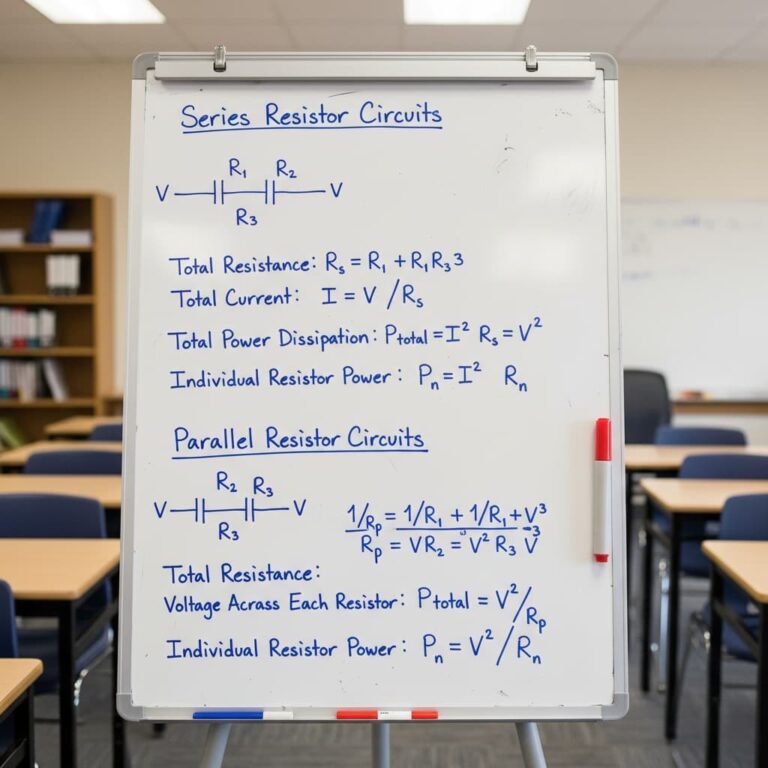 Series Resistor Circuits
R₁ R₂
V V
R₃
Total Resistance: Rₛ = R₁ + R₁R₃3
Total Current: I = V / Rₛ
Total Power Dissipation: Ptotal = I² Rₛ = V²
Individual Resistor Power: Pₙ = I² Rₙ
Parallel Resistor Circuits
R₂ R₃
V V
R₃
1/Rₚ = 1/R₁ + 1/R₁ + V³
Rₚ = VR₂ = V² R₃ V̄³
Total Resistance:
Voltage Acrass Each Resistor: Ptotal = V²/Rₚ
Individual Resistor Power: Pₙ = V²/Rₙ